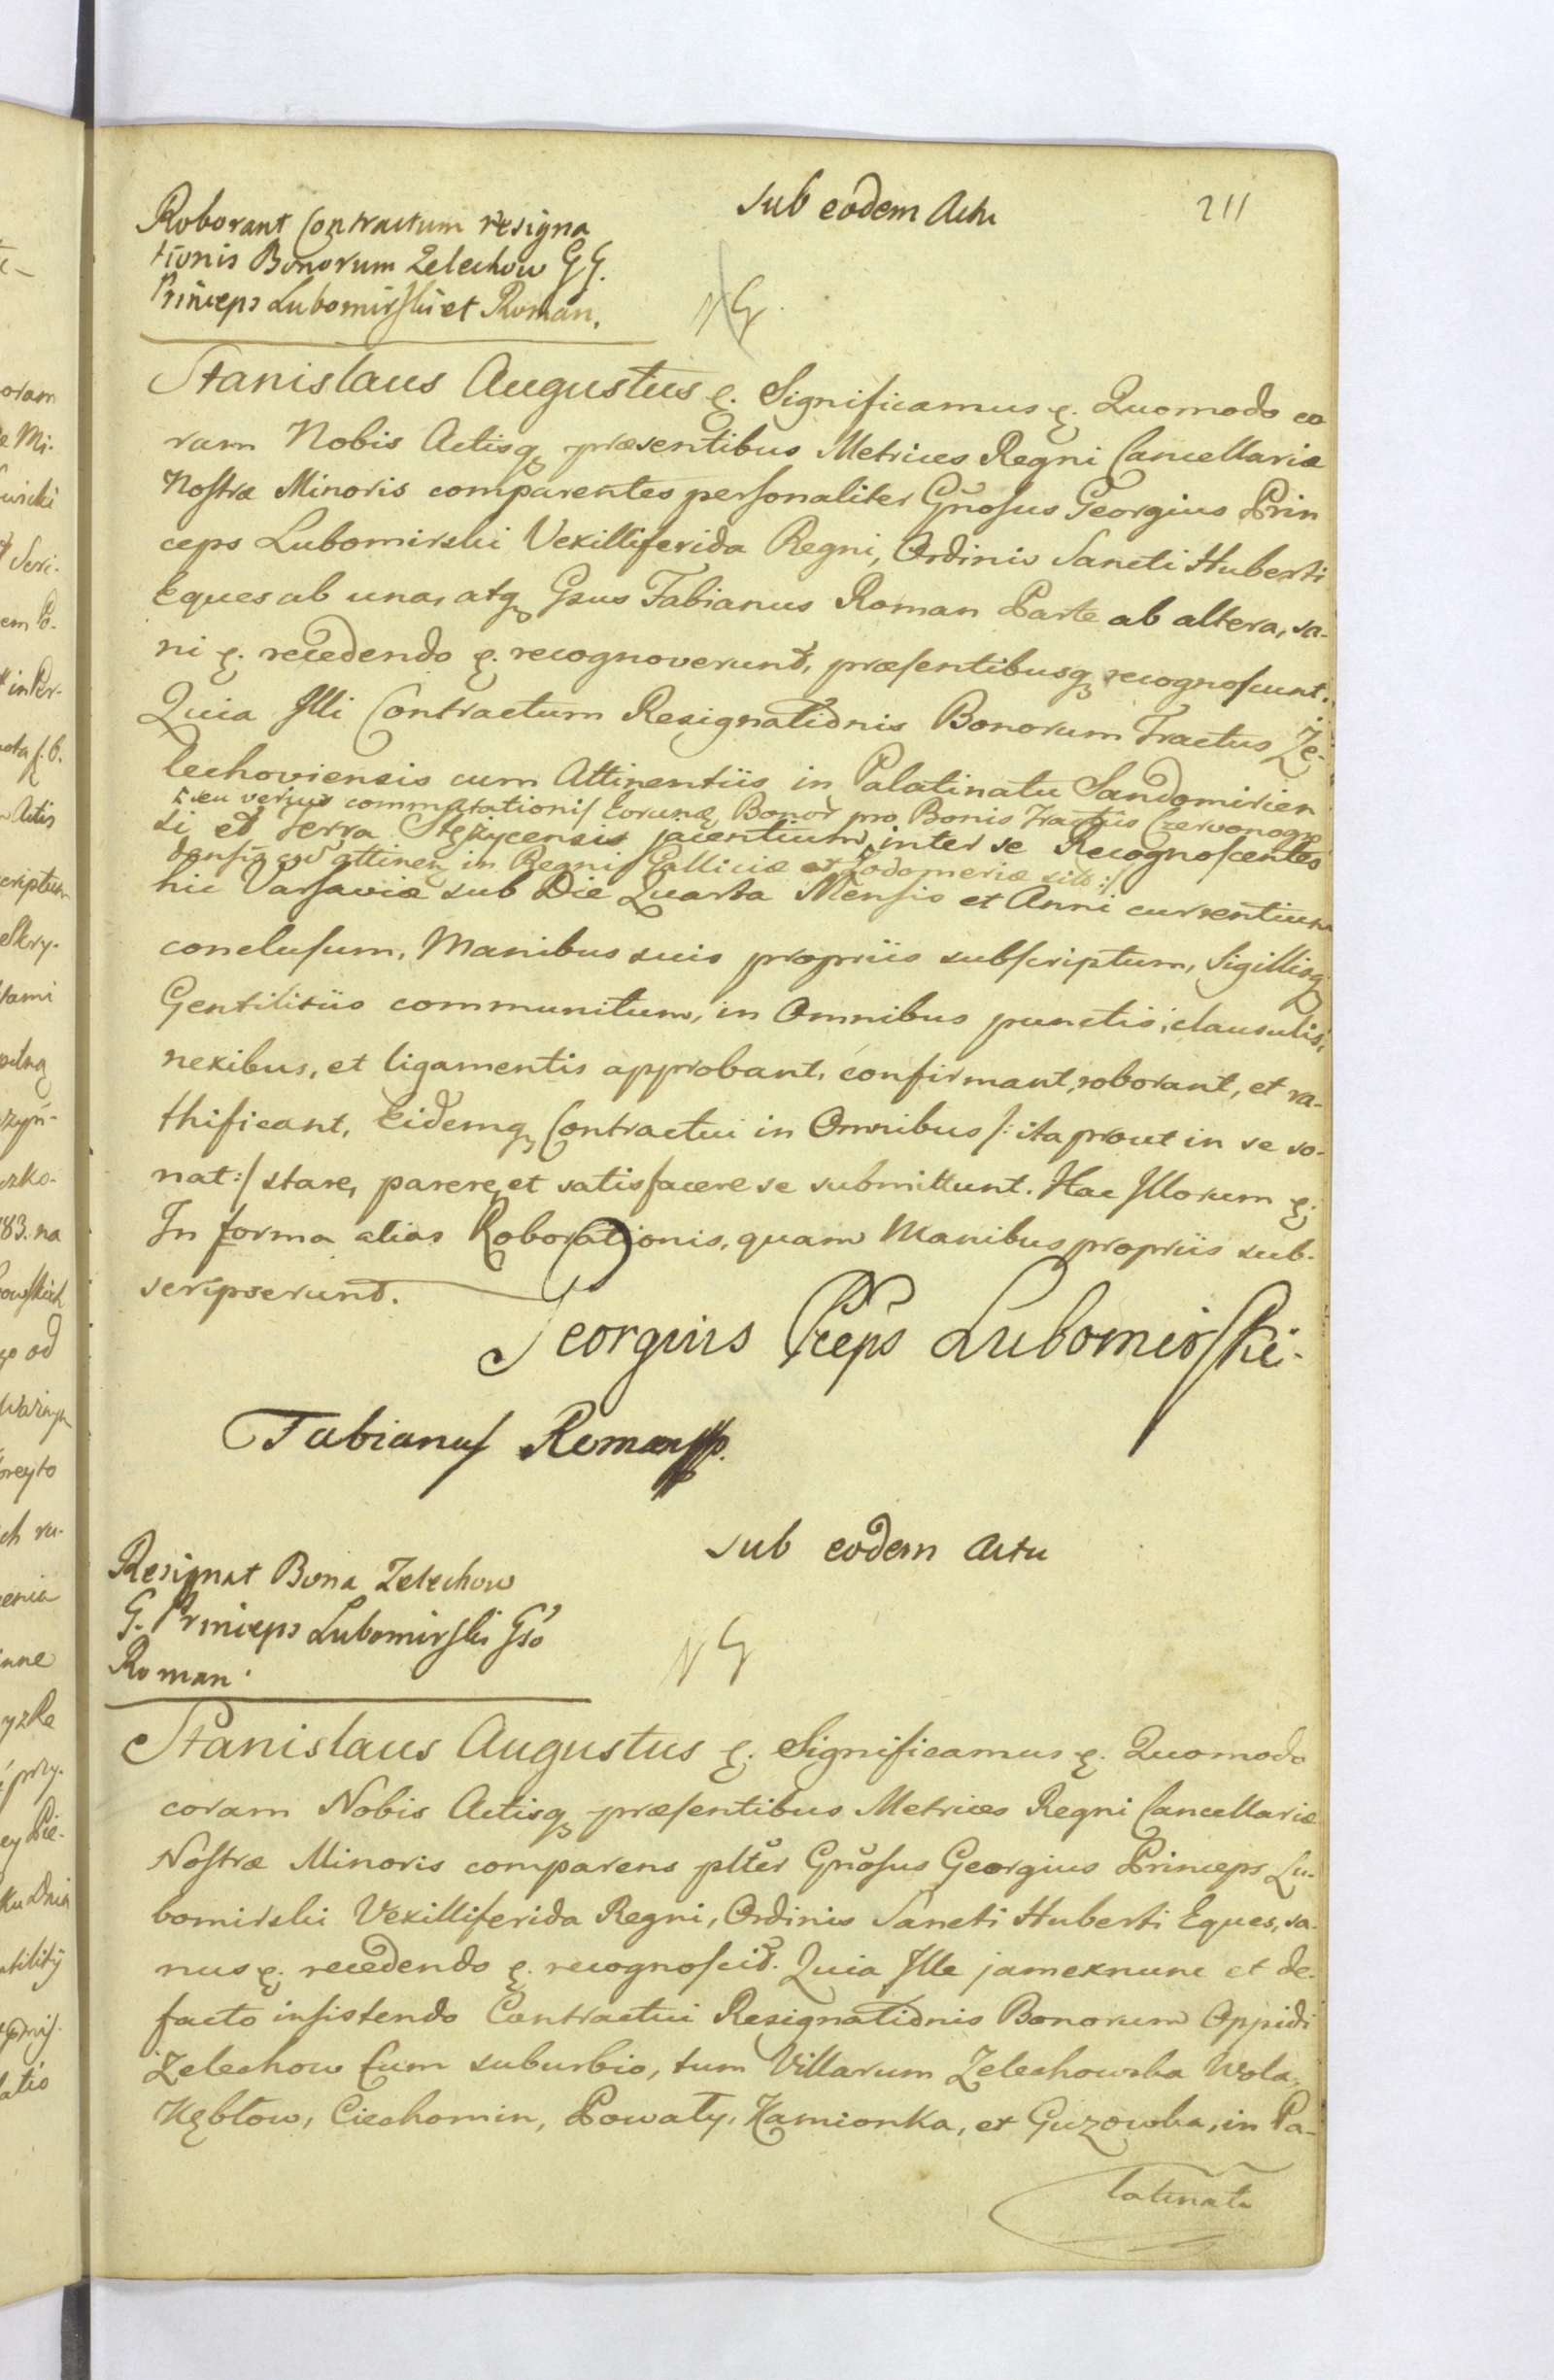 211
Sub eodem Actu
Roborant Contractum resigna
tionis Bonorum Zelechow GG.
Princeps Lubomirski et Roman.
NG
Stanislaus Augustus &. Significamus &. Quomodo co
ram Nobis Actisq, præsentibus Metrices Regni Cancellariæ
Nostræ Minoris comparentes personaliter Gnosus Georgius Prin
ceps Lubomirski Vexilliferida Regni, Ordinis Sancti Huberti
Eques ab una, atq, Gsus Fabianus Roman Parte ab altera, sa-
ni &. recedendo &. recognoverunt, præsentibusq, recognoscunt.
Quia Illi Contractum Resignationis Bonorum Tractus Że-
lechoviensis cum Attinentiis in Palatinatu Sandomirien
seu verius commutationis Eorunq, Bonor pro Bonis Tractus Czervonogro
si, et Terra Stężycensis jacentium, inter se Recognoscentes
densis cum attinen, in Regni Galliciæ et Lodomeriæ sitis :/
hic Varsaviæ sub Die Quarta Mensis et Anni currentium
conclusum, Manibus suis propriis subscriptum, Sigillisq,
Gentilitiis communitum, in Omnibus punctis, clausulis,
nexibus, et ligamentis approbant, confirmant, roborant, et ra-
thificant, Eidemq, Contractui in Omnibus /: ita prout in se so-
nat :/ stare, parere, et satisfacere se submittunt. Hac Illorum &.
In forma alias Roborationis, quam Manibus propriis sub-
scripserunt.
Georgius Pceps Lubomirski.
Fabianus Roman mpp.
Sub eodem Actu
Resignat Bona Zelechow
G. Princeps Lubomirski Gso
Roman.
NG
Stanislaus Augustus &. Significamus &. Quomodo
coram Nobis Actisq, præsentibus Metrices Regni Cancellariæ
Nostræ Minoris comparens plter Gnosus Georgius Princeps Lu-
bomirski Vexilliferida Regni, Ordinis Sancti Huberti Eques, sa-
nus &. recedendo &. recognoscit. Quia Ille jamexnunc et de-
facto insistendo Contractui Resignationis Bonorum Oppidi
Zelechow Cum suburbio, tum Villarum Zelechowska Wola,
Kębłow, Ciechomin, Powały, Kamionka, et Guzowka, in Pa-
latinatu